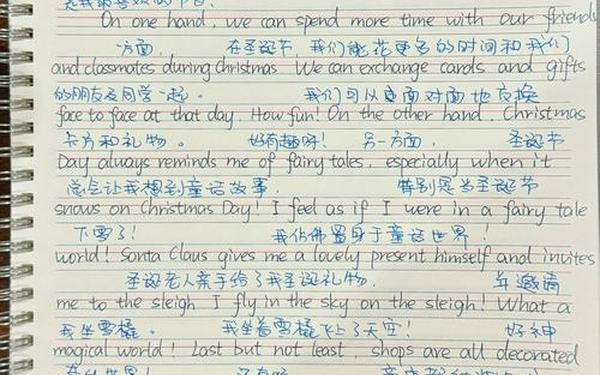 On one hand, we can spend more time with our friends
一方面， 在圣诞节，我们能花更多的时间和我们
and classmates during christmas. We can exchange cards and gifts
的朋友及同学一起。 我们可以面对面地交换
face to face at that day. How fun! On the other hand, Christmas
卡片和礼物。 好有趣呀！ 另一方面， 圣诞节
Day always reminds me of fairy tales, especially when it
总会让我想到童话故事， 特别是当圣诞节
snows on Christmas Day! I feel as if I were in a fairy tale
下雪了！ 我仿佛置身于童话世界！
world! Santa Claus gives me a lovely present himself and invites
圣诞老人亲手给了我圣诞礼物， 并邀请
me to the sleigh I fly in the sky on the sleigh! What a
我坐雪橇。 我坐着雪橇飞上了天空！ 好神
magical world! Last but not least, shops are all decorated